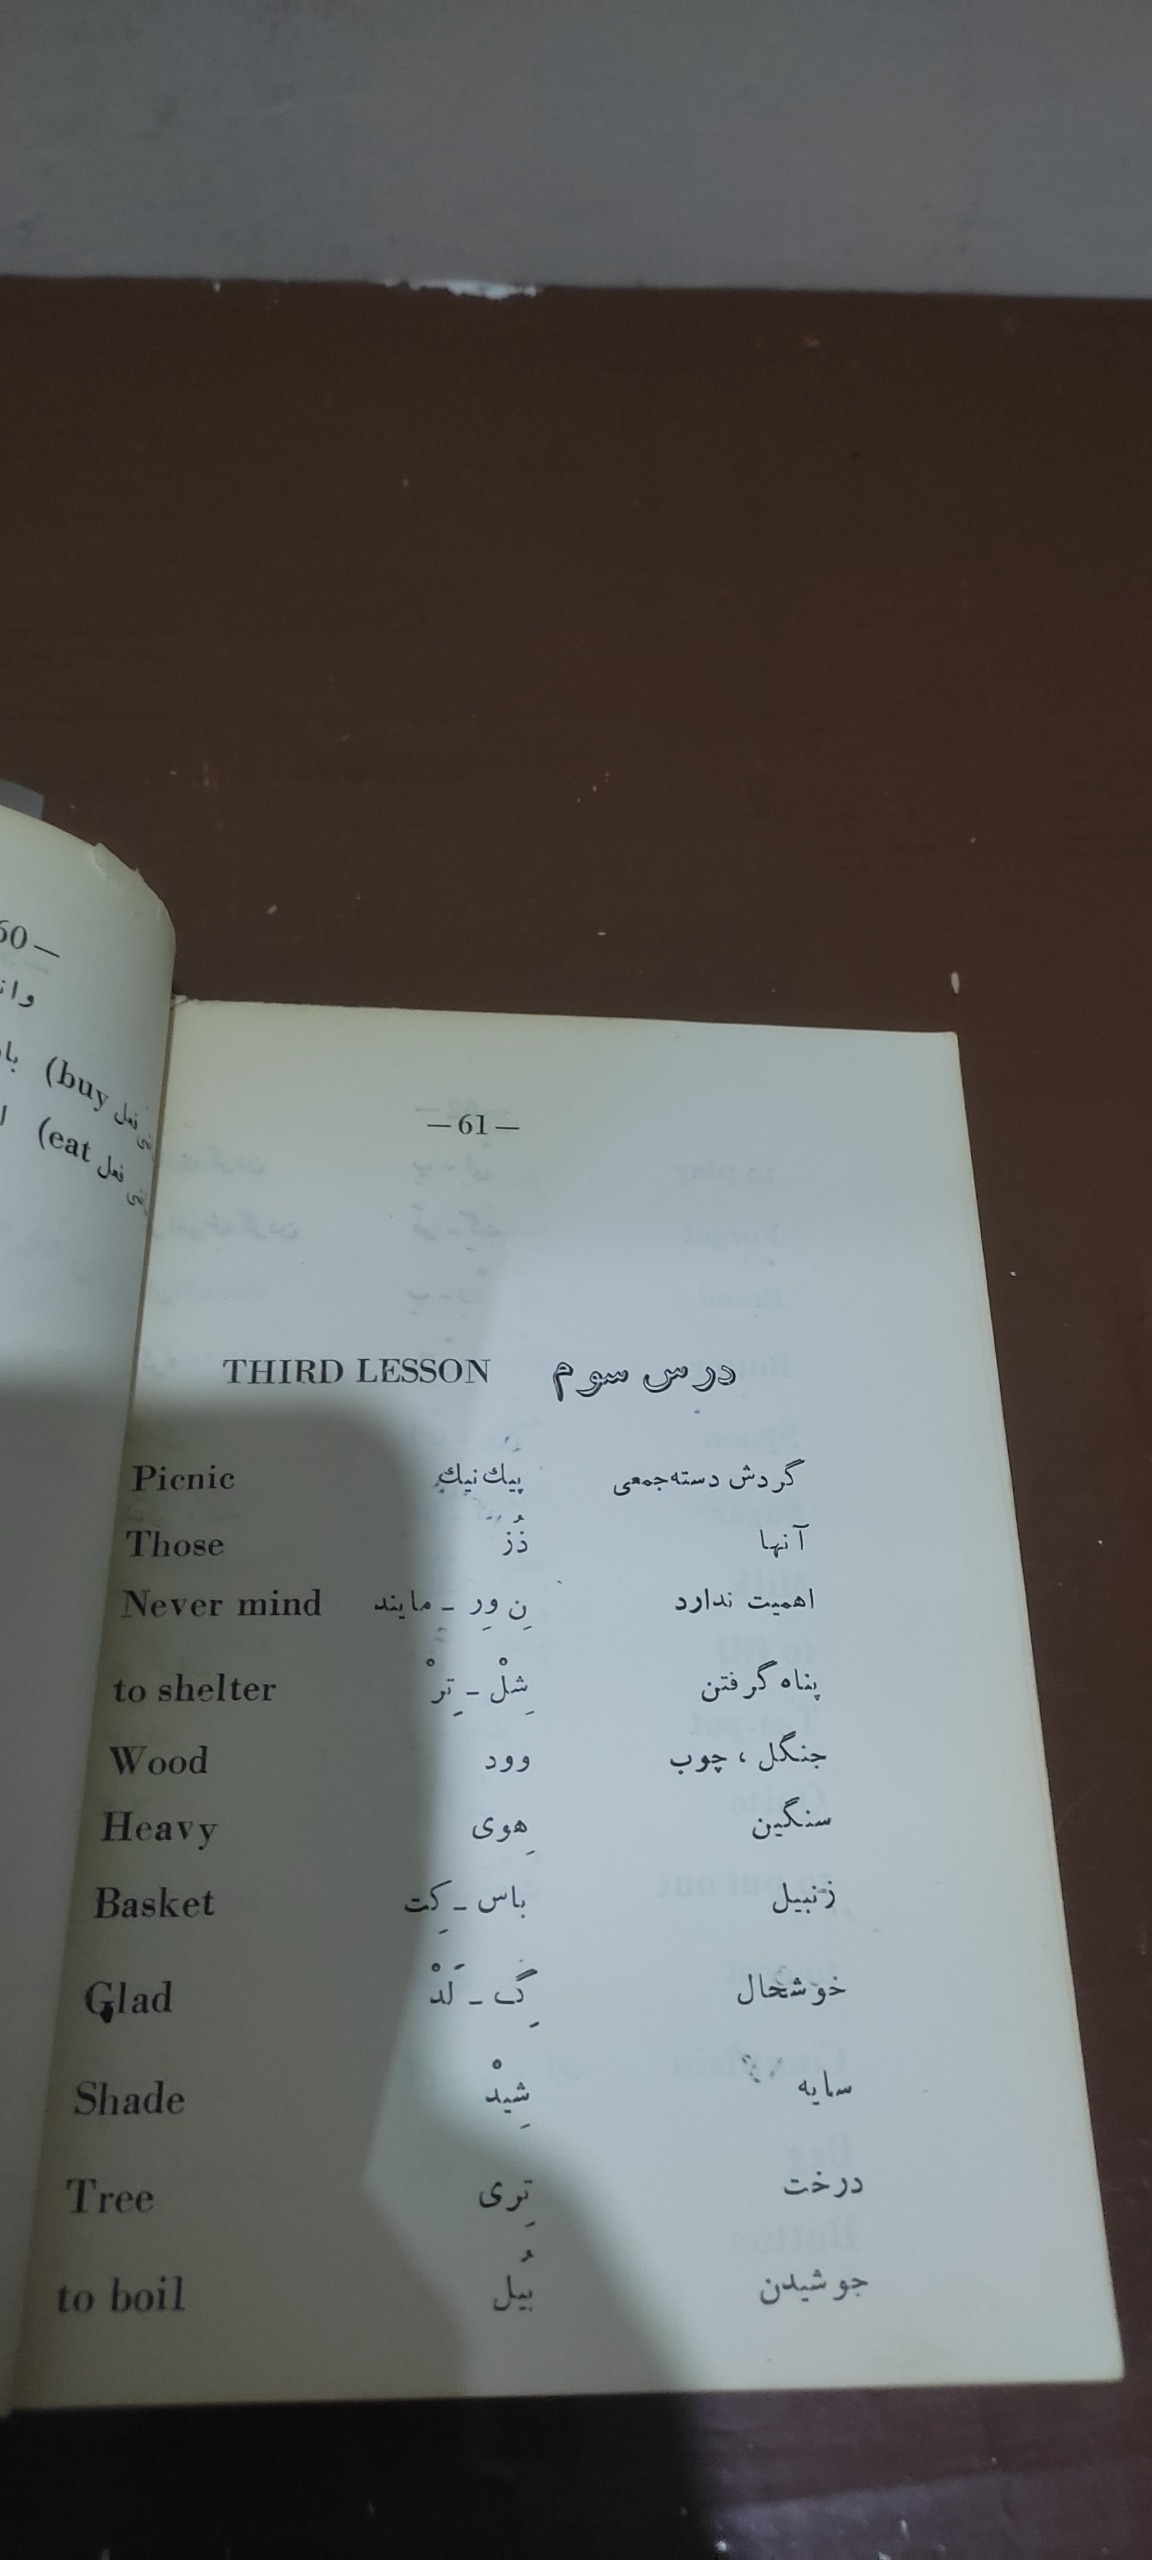 60—
(buy فعل
(eat فعل
—61—
THIRD LESSON درس سوم
Picnic پیك نیك گردش دسته‌جمعی
Those ذُز آنها
Never mind نِ وِر - مایند اهمیت ندارد
to shelter شِلْ - تِرْ پناه گرفتن
Wood وود جنگل ، چوب
Heavy هِوی سنگین
Basket باس - کِت زنبیل
Glad گِ - لَدْ خوشحال
Shade شِیدْ سایه
Tree تِری درخت
to boil بُیل جوشیدن